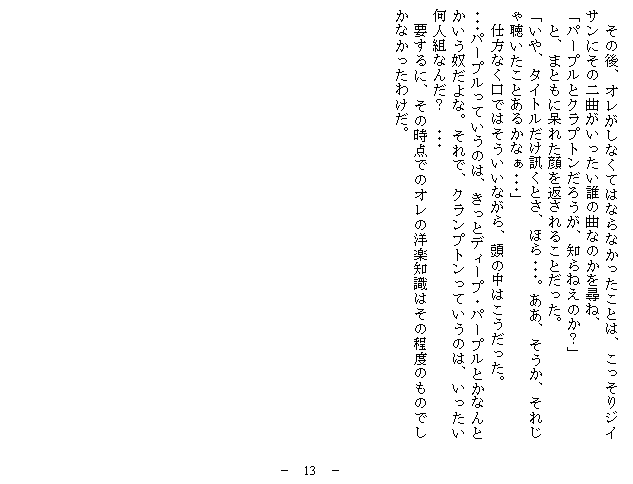 その後、オレがしなくてはならなかったことは、こっそりジイ
サンにその二曲がいったい誰の曲なのかを尋ね、
「パープルとクラプトンだろうが、知らねえのか？」
　と、まともに呆れた顔を返されることだった。
「いや、タイトルだけ訊くとさ、ほら・・・。ああ、そうか、それじ
ゃ聴いたことあるかなぁ・・・」
　仕方なく口ではそういいながら、頭の中はこうだった。
・・・パープルっていうのは、きっとディープ・パープルとかなんと
かいう奴だよな。それで、クランプトンっていうのは、いったい
何人組なんだ？　・・・
　要するに、その時点でのオレの洋楽知識はその程度のものでし
かなかったわけだ。
－　13　－